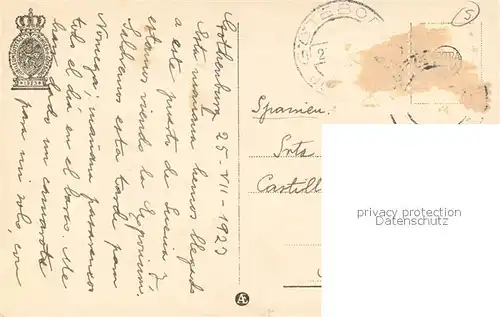 Gothemburg 25-VIII-1923
Esta mañana hemos llegado
a este puerto de Suecia y
estamos viendo la Exposición.
Saldremos esta tarde para
Noruega; mañana pasaremos
todo el día en el barco. Me
han dado un camarote
para mi solo, con
GÖTEBOR
5
Spanien.
Srta
Castill
privacy protection
Datenschutz
1923